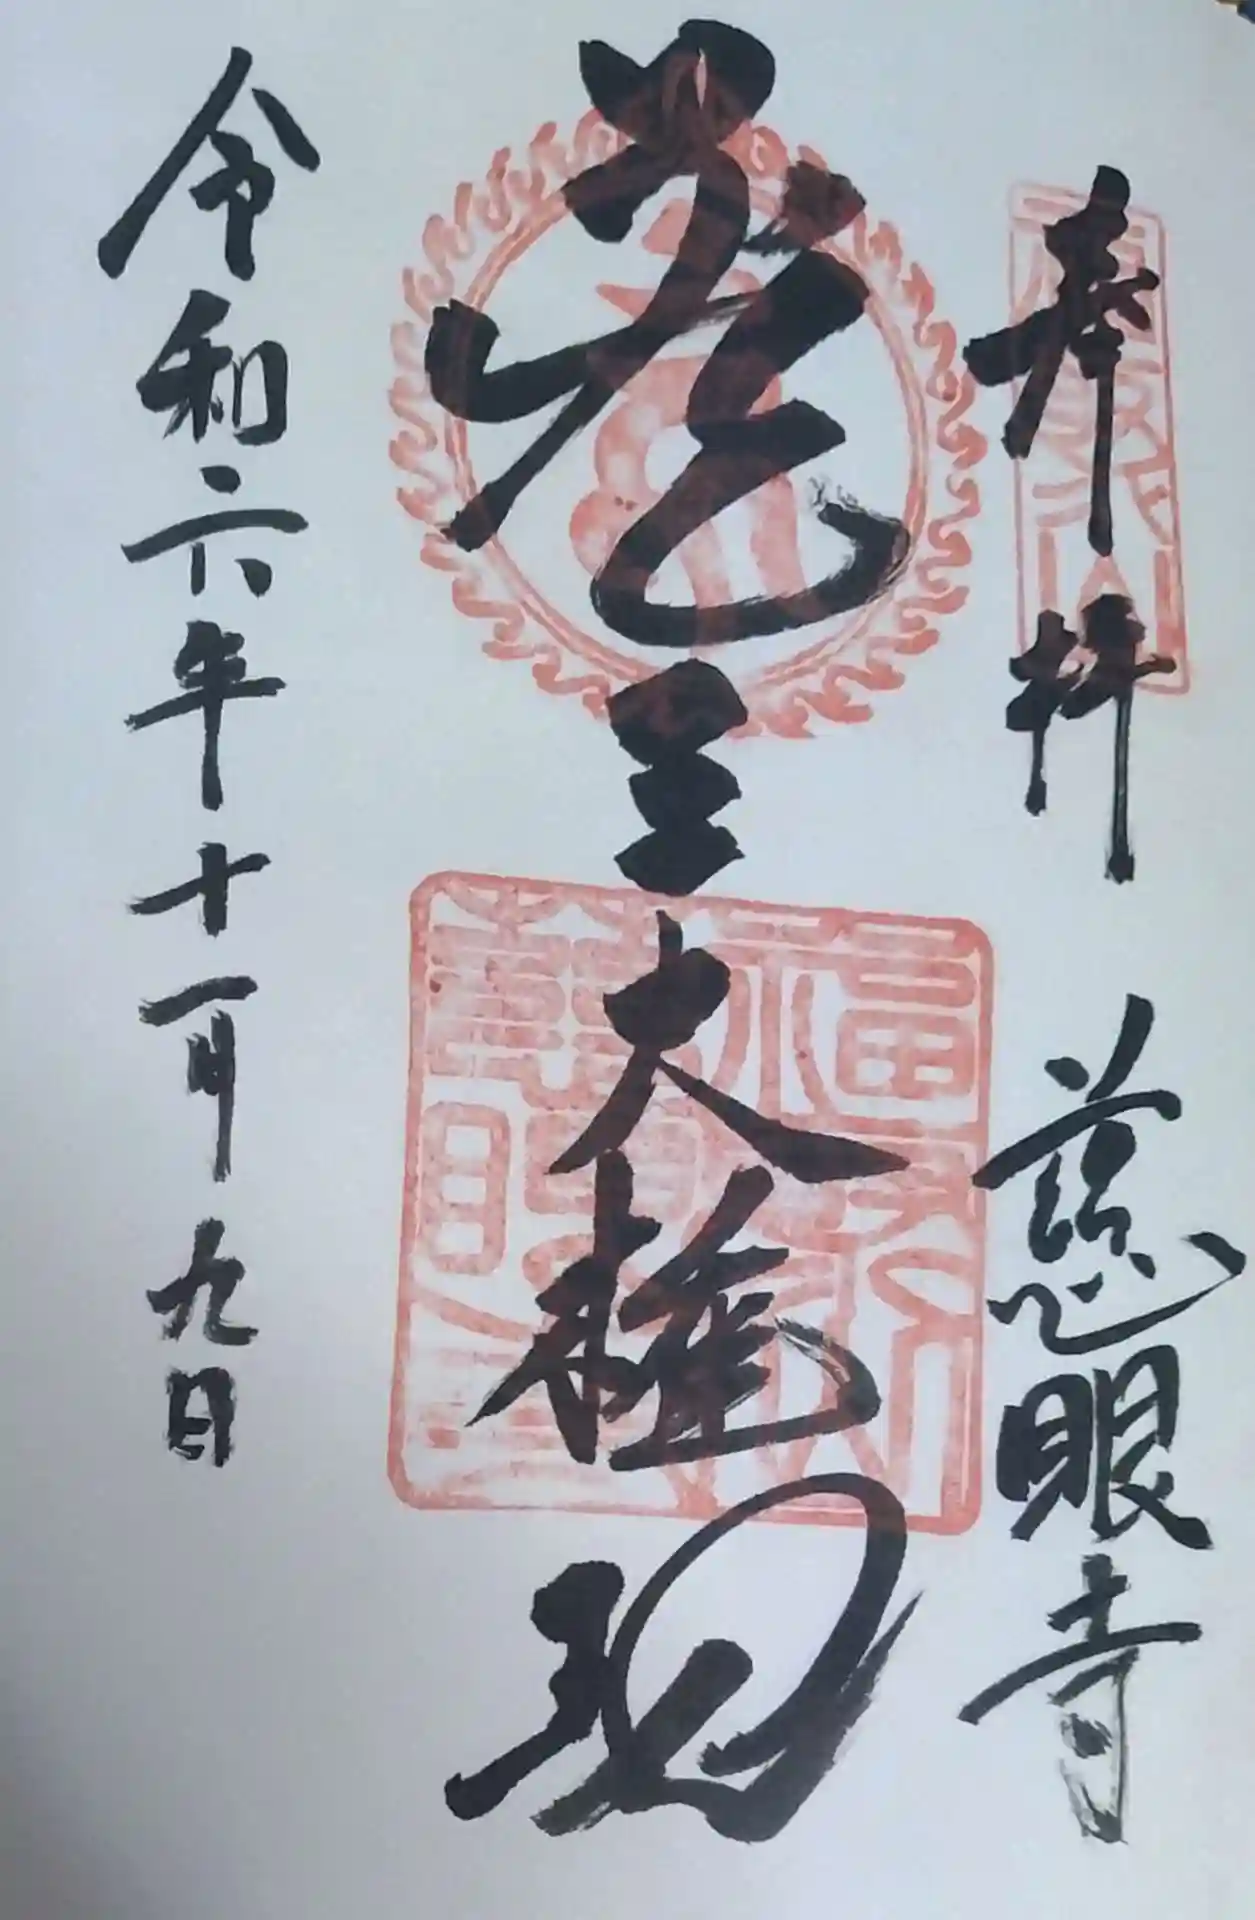 福聚山
奉拝 慈眼寺
蔵王大権現
令和六年十一月九日